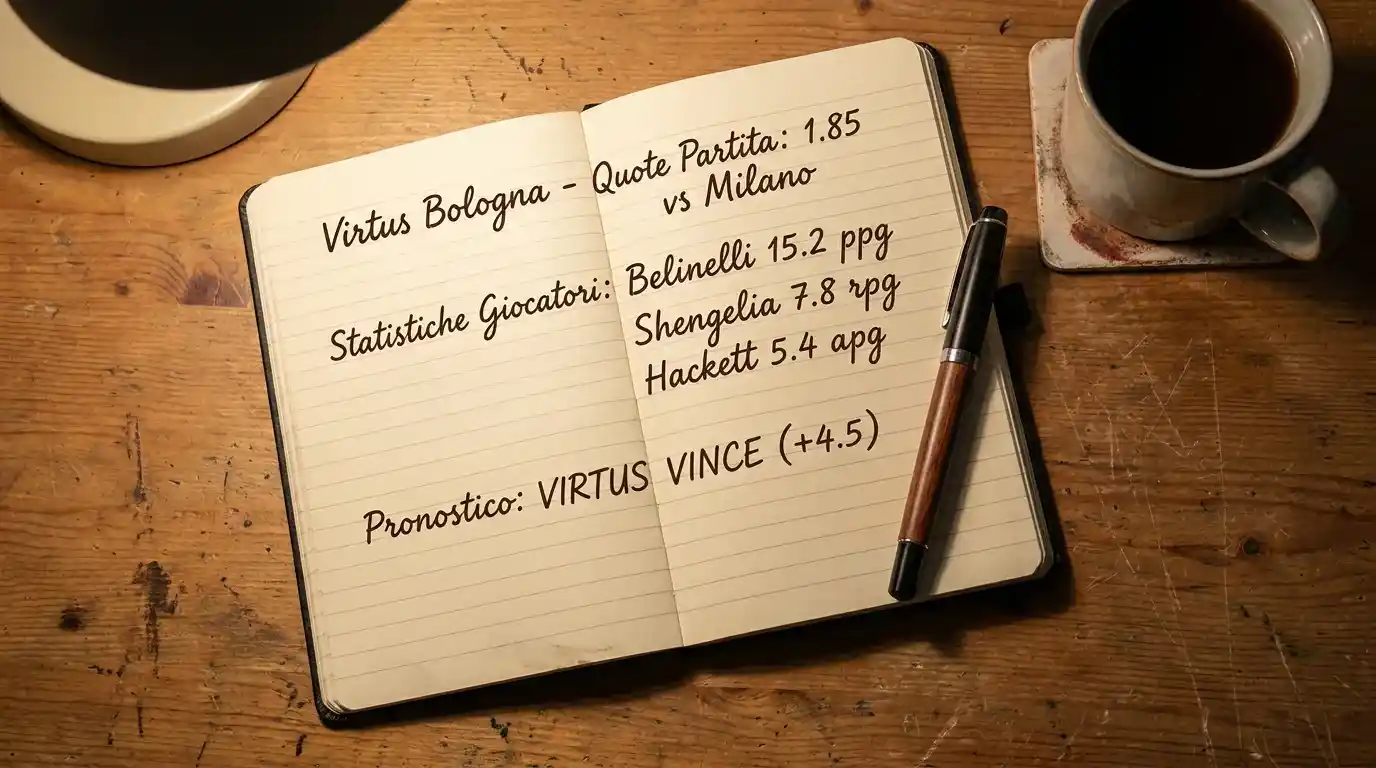 Virtus Bologna - Quote Partita: 1.85
vs Milano
Statistiche Giocatori: Belinelli 15.2 ppg
Shengelia 7.8 rpg
Hackett 5.4 apg
Pronostico: VIRTUS VINCE (+4.5)